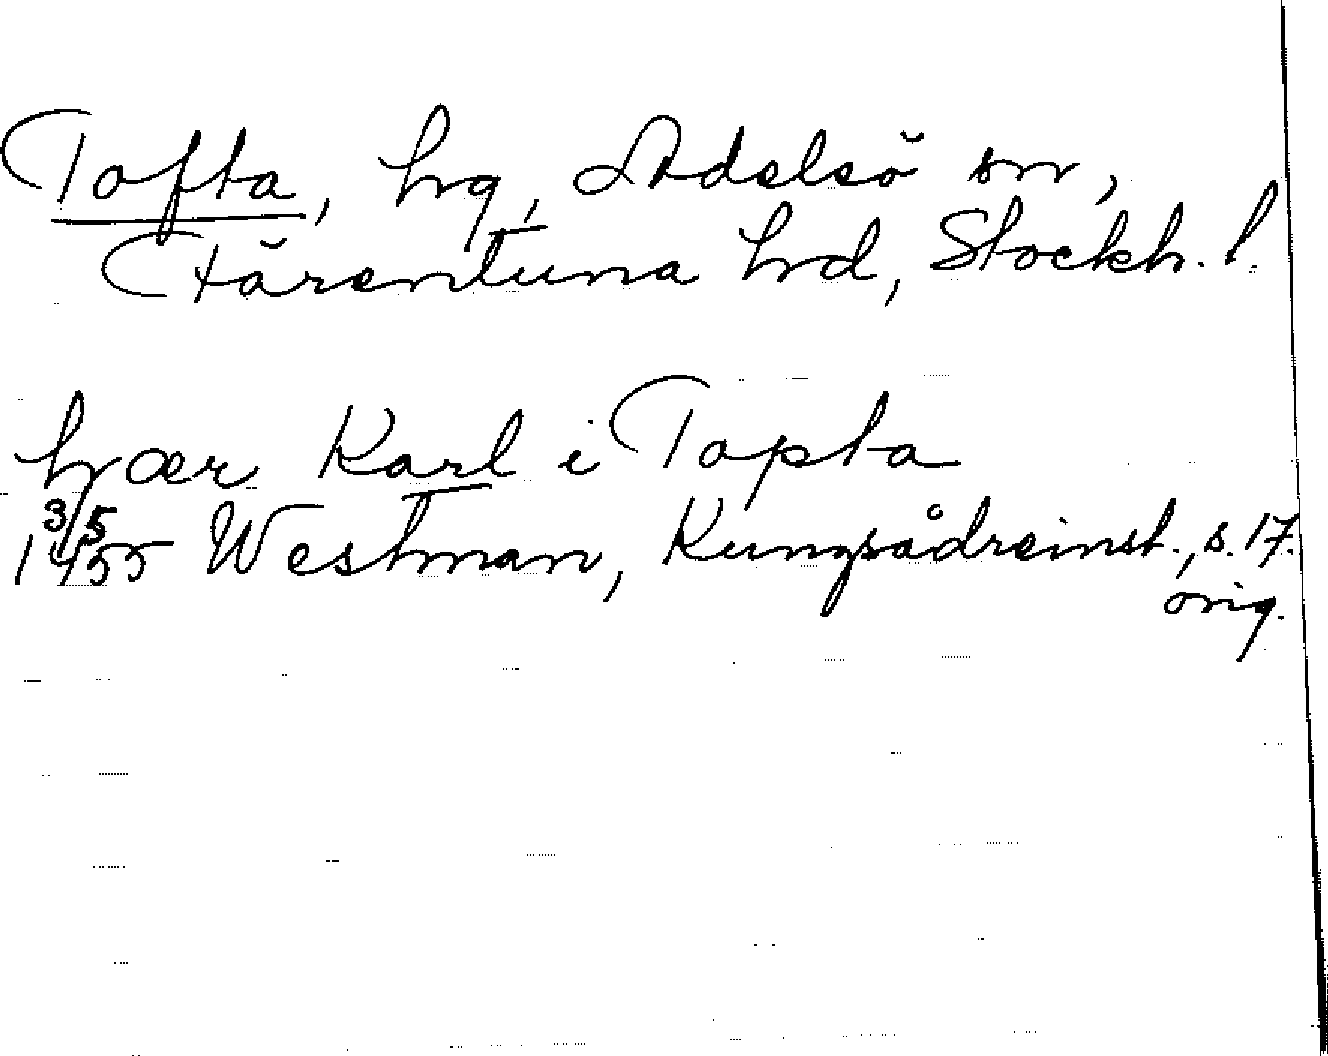 Tofta, hg, Adelsö sn,
Färentuna hd, Stockh. l.
hær Karl i Topta
3/5
1455 Westman, Kungsådreinst., s. 17.
orig.